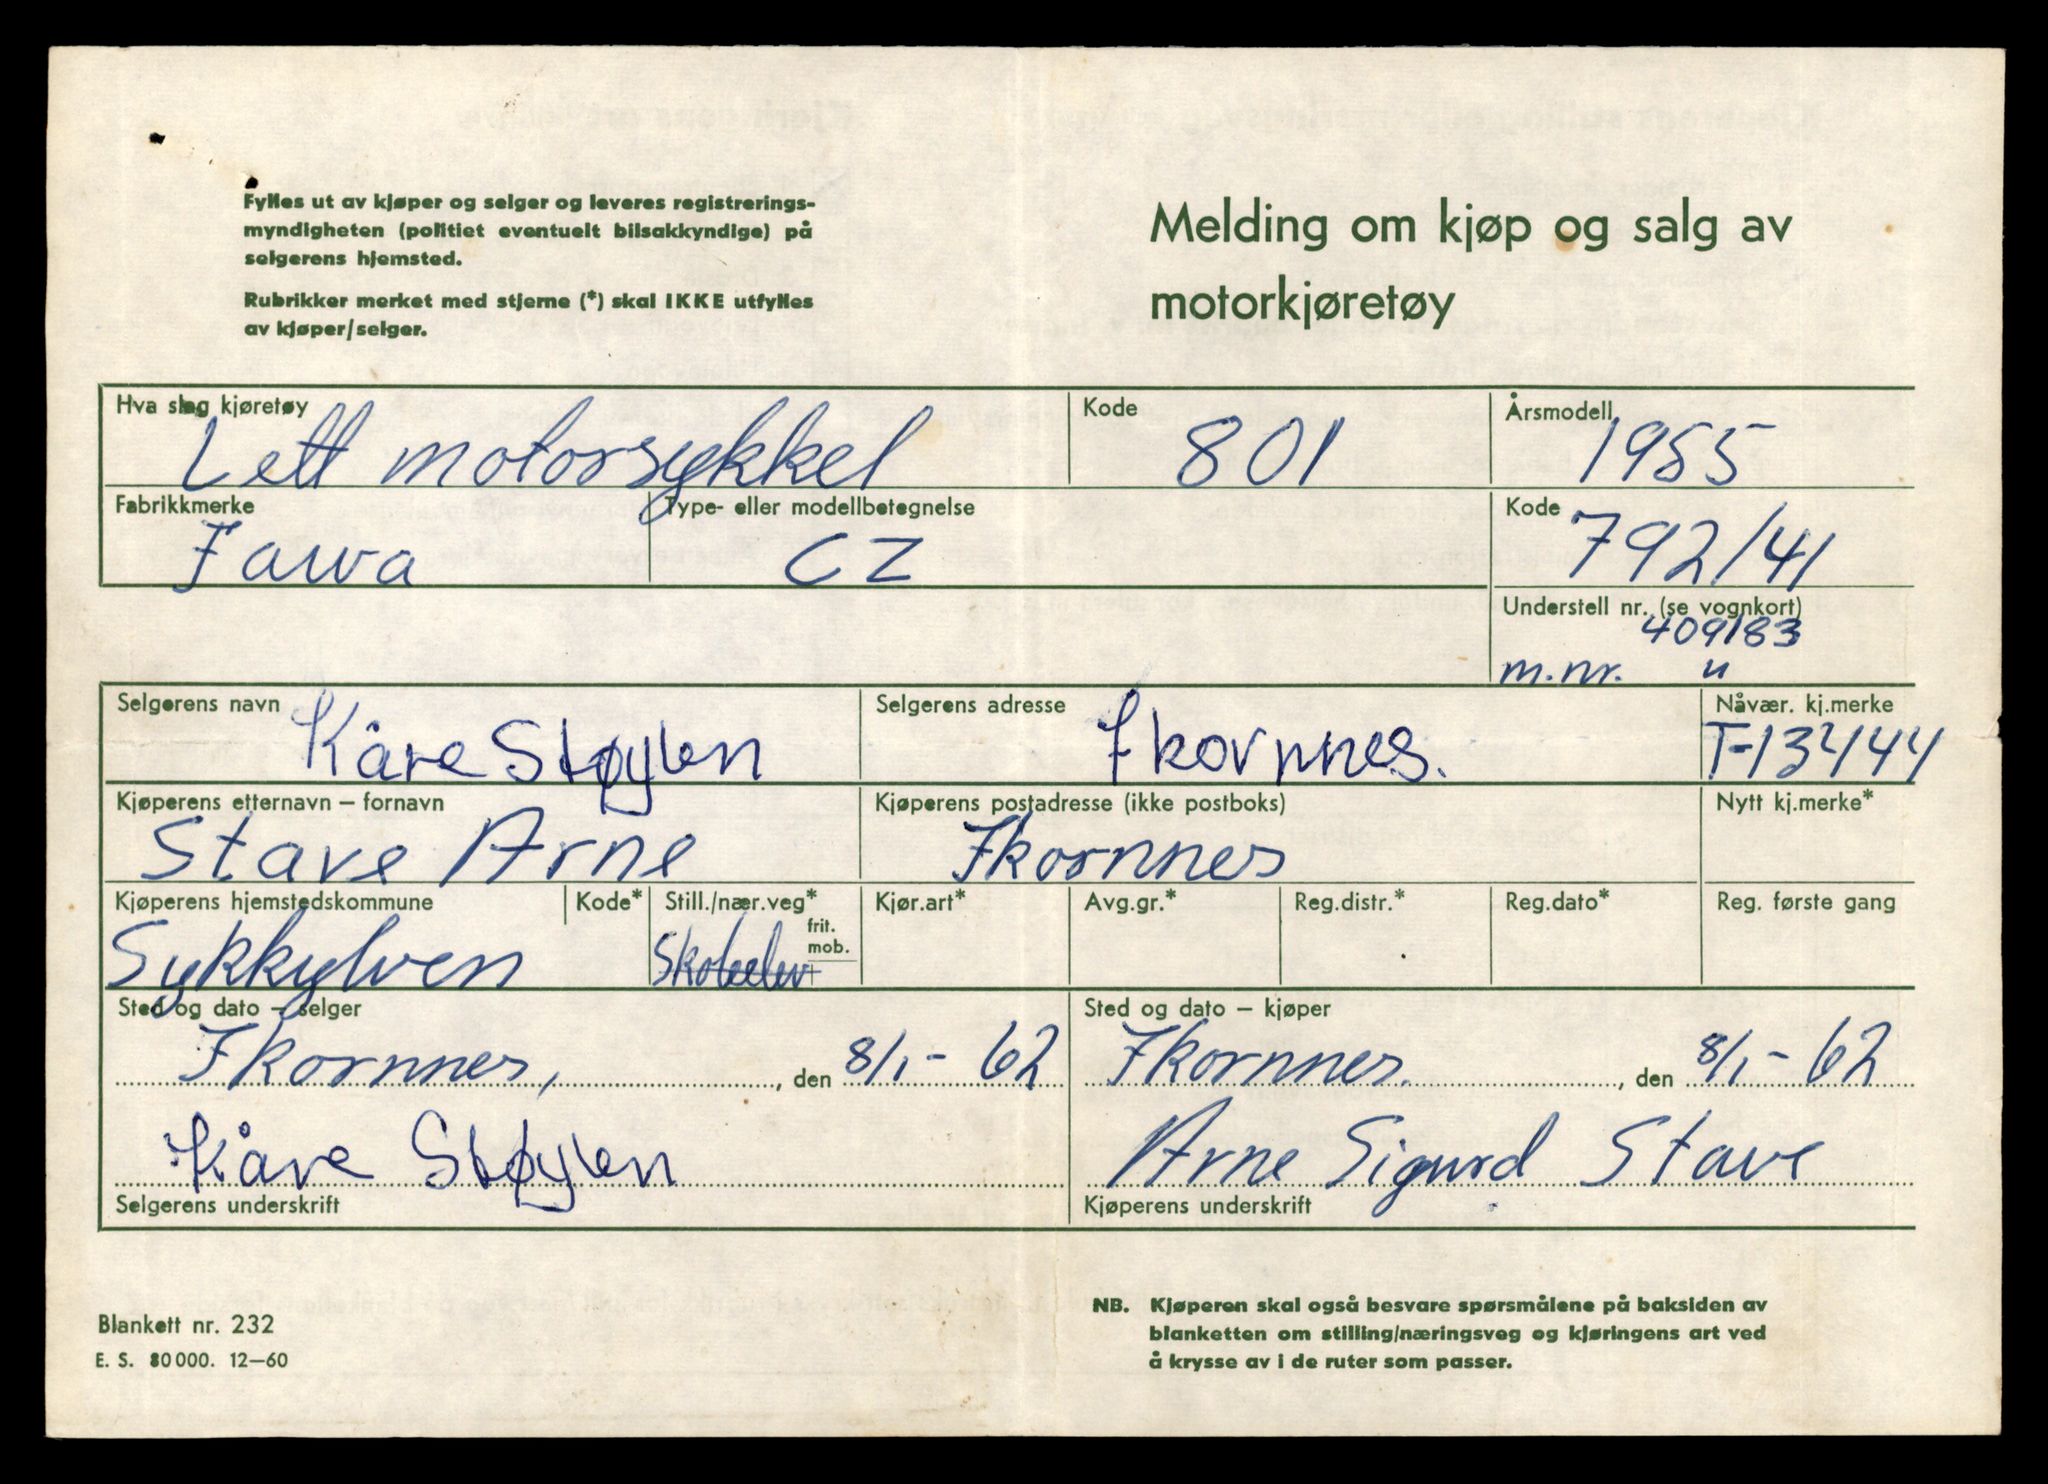 Fylles ut av kjøper og selger og leveres registrerings-
myndigheten (politiet eventuelt bilsakkyndige) på
selgerens hjemsted.
Rubrikker merket med stjerne (*) skal IKKE utfylles
av kjøper/selger.
Melding om kjøp og salg av
motorkjøretøy
Hva slag kjøretøy Kode Årsmodell
Lett motorsykkel 801 1955
Fabrikkmerke Type- eller modellbetegnelse Kode
Jawa CZ 792/41
Understell nr. (se vognkort)
409183
m.nr. "
Selgerens navn Selgerens adresse Nåvær. kj.merke
Kåre Støylen Ikornnes. T-13444
Kjøperens etternavn – fornavn Kjøperens postadresse (ikke postboks) Nytt kj.merke*
Stave Arne Ikornnes
Kjøperens hjemstedskommune Kode* Still./nær.veg* Kjør.art* Avg.gr.* Reg.distr.* Reg.dato* Reg. første gang
frit.
mob.
Sykkylven Skoleelev
Sted og dato – selger Sted og dato – kjøper
Ikornnes, , den 8/1-62 Ikornnes. , den 8/1-62
Kåre Støylen Arne Sigurd Stave
Selgerens underskrift Kjøperens underskrift
NB. Kjøperen skal også besvare spørsmålene på baksiden av
blanketten om stilling/næringsveg og kjøringens art ved
å krysse av i de ruter som passer.
Blankett nr. 232
E. S. 80 000. 12–60